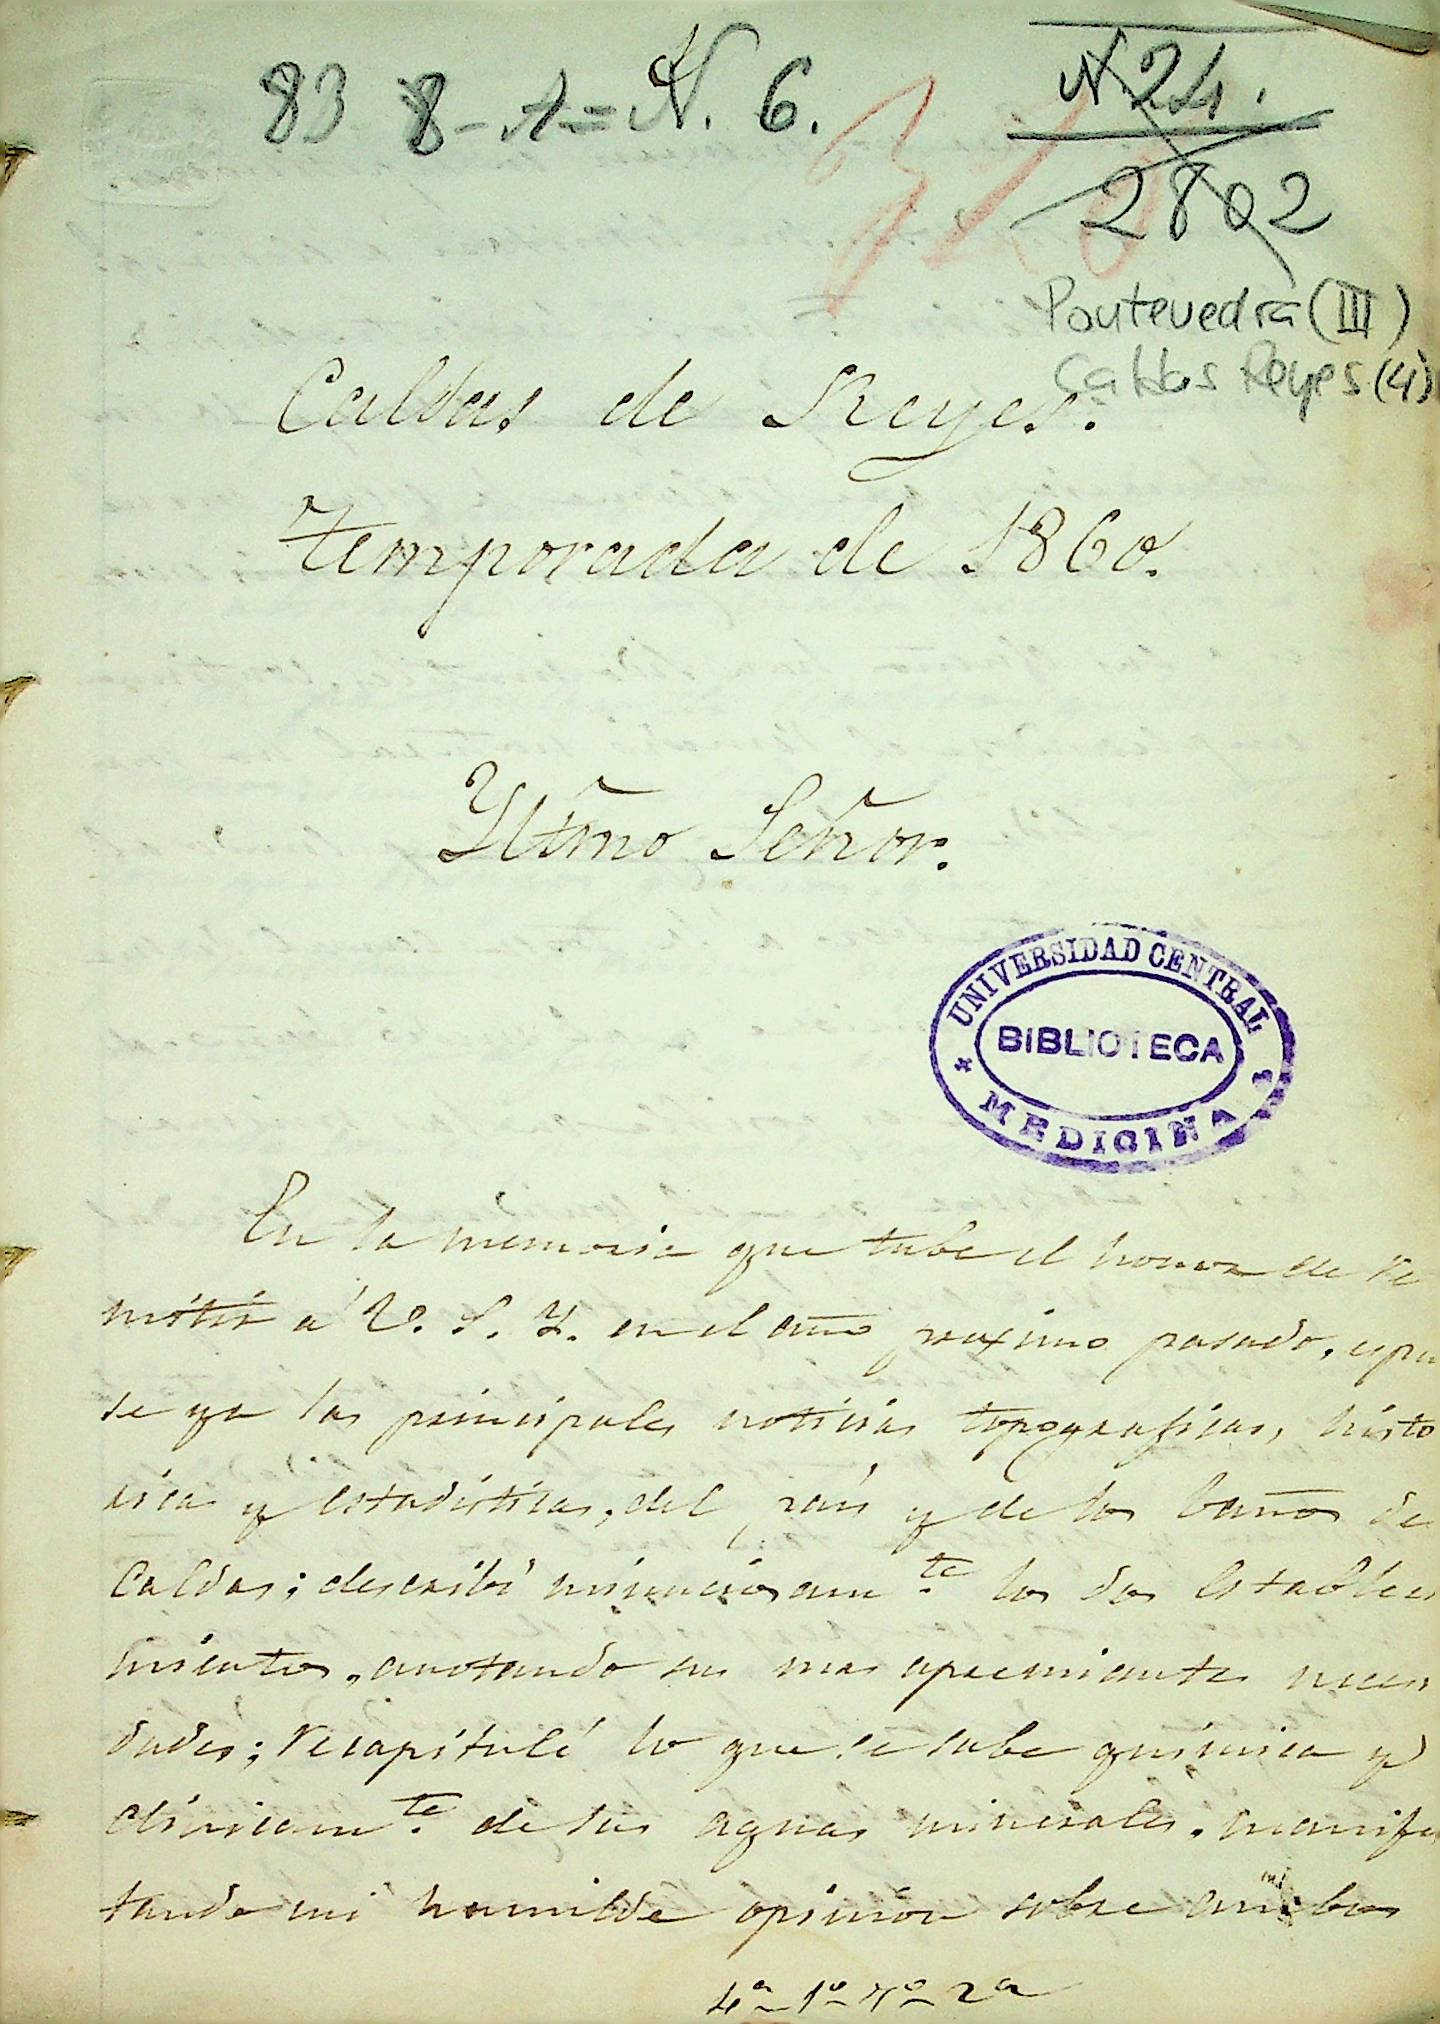 83 8-1=N. 6.
N 24.
2802
Pontevedra (III)
Caldas Reyes (4)
Caldas de Reyes.
Temporada de 1860.
Yltmo Señor.
UNIVERSIDAD CENTRAL
BIBLIOTECA
MEDICINA
En la memoria que tube el honor de re
mitir a V. S. Y. en el año proximo pasado, espu
se ya las principales noticias topograficas, histo
ricas y estadisticas, del pais y de los baños de
Caldas; describí minuciosam.te los dos estableci
mientos, anotando sus mas apremiantes necesi
dades; recapitulé lo que se sabe quimica y
clinicam.te de sus aguas minerales, manifes
tando mi humilde opinion sobre ambos
4a 1o 4o 2a